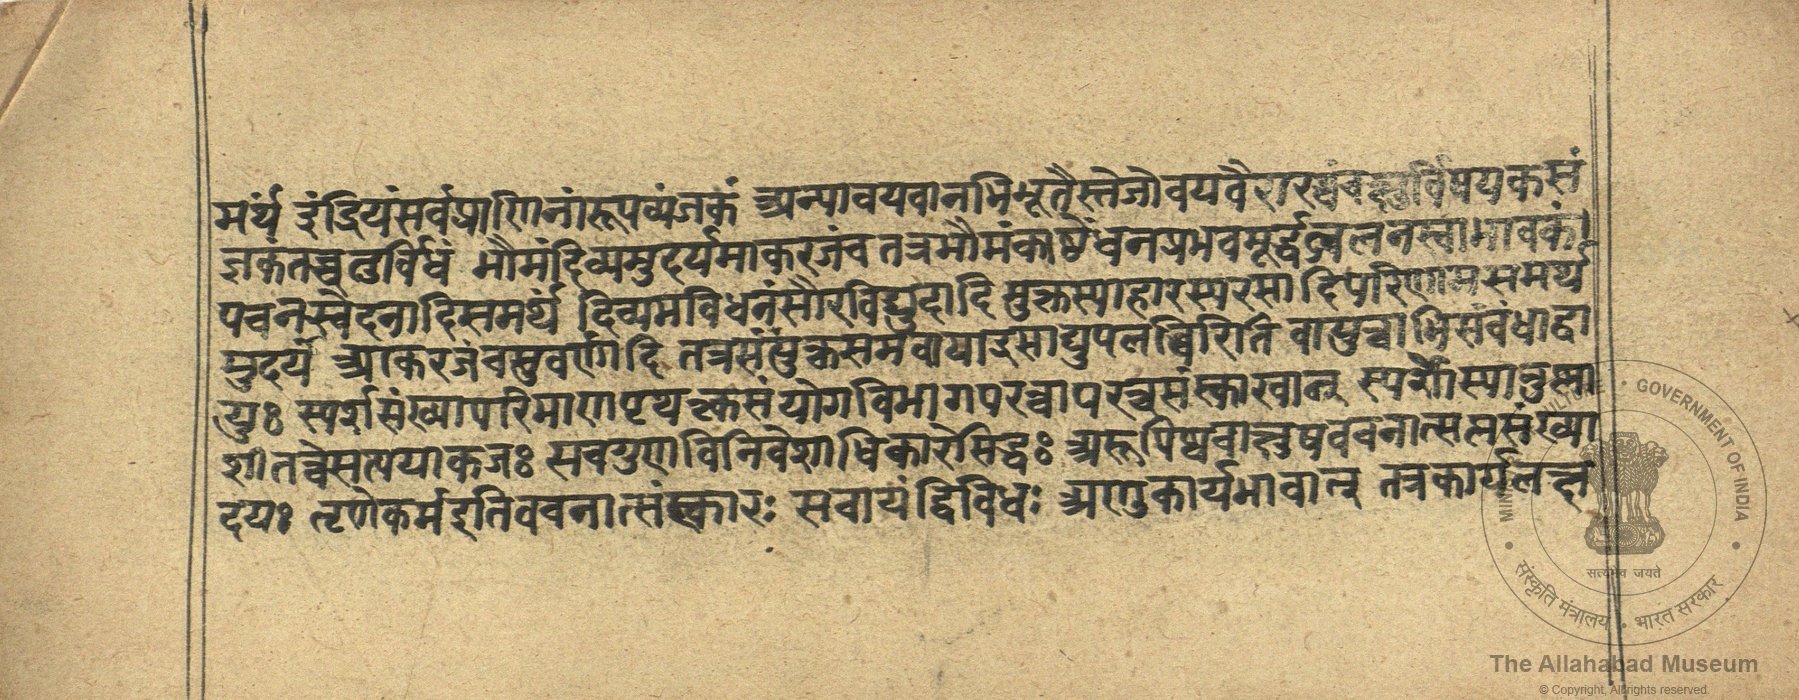 मर्थं इंद्रियंसर्वप्राणिनांरूपव्यंजकं अन्यावयवानभिभूतैस्तेजोवयवैरारब्धंचक्षुर्विषयकसं
ज्ञकंतच्चतुर्विधं भौमंदिव्यमुदर्यमाकरजंच तत्रभौमंकाष्ठेंधनप्रभवमूर्द्ध्वज्वलनस्वाभावकं।
पचनस्वेदनादिसमर्थं दिव्यमविधनंसौरविद्युदादि भुक्तस्याहारस्यरसादिपरिणामसमर्थ
मुदर्यं आकरजंचसुवर्णादि तत्रसंयुक्तसमवायाद्रसाद्युपलब्धिरिति वायुत्वाभिसंबंधाद्वा
युः स्पर्शसंख्यापरिमाणपृथक्तसंयोगविभागपरत्वापरत्वसंस्कारवान् स्पर्शोस्यानुष्णा
शीतत्वेसत्पयाकजः सवगुणविनिवेशाधिकारेसिद्धः अरूपिष्वचाक्षुषवचनात्सप्तसंख्या
दयः तृणेकर्मइतिवचनात्संस्कारः सचायंद्विविधः अणुकार्यभावात् तत्रकार्यलक्ष
MINISTRY OF CULTURE • GOVERNMENT OF INDIA
सत्यमेव जयते
संस्कृति मंत्रालय • भारत सरकार
The Allahabad Museum
© Copyright, All rights reserved